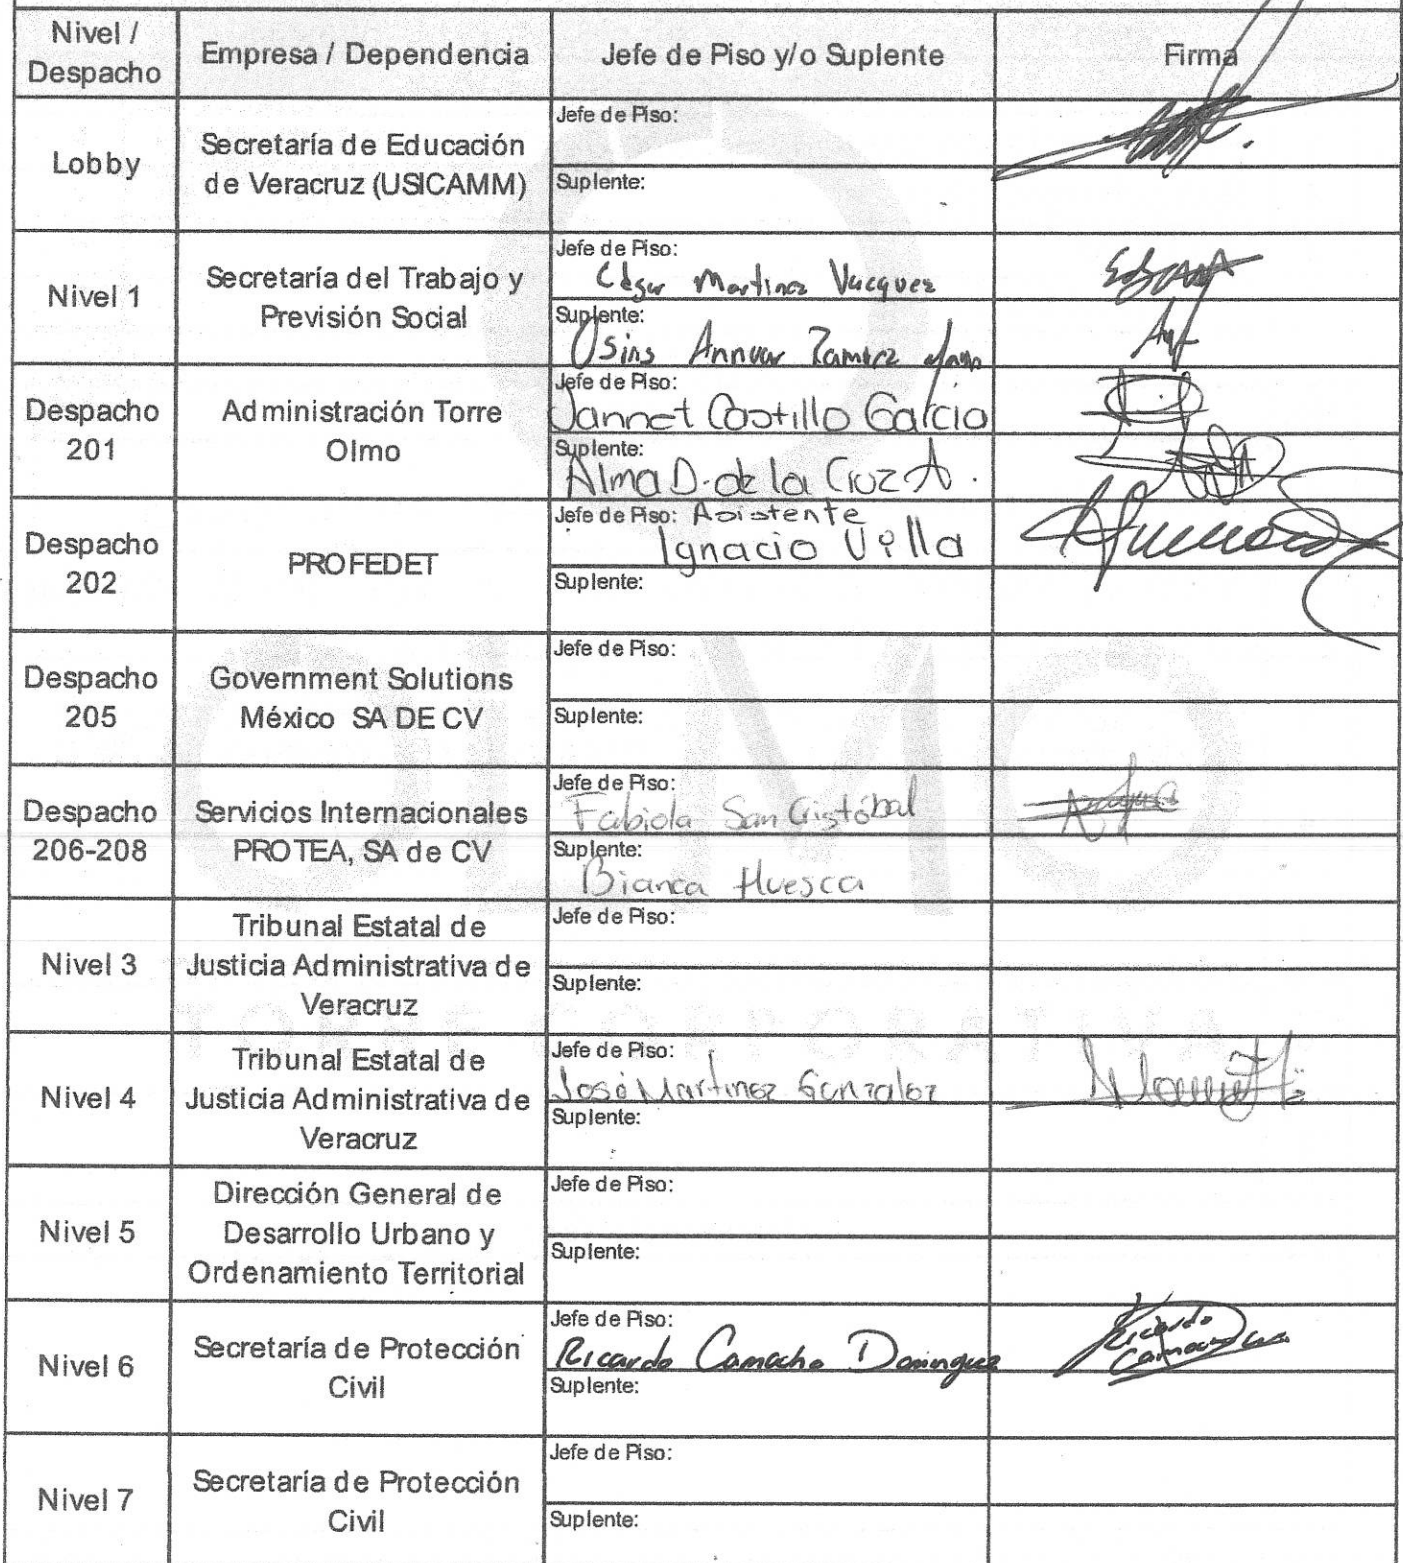 Nivel / Despacho
Empresa / Dependencia
Jefe de Piso y/o Suplente
Firma
Lobby
Secretaría de Educación
de Veracruz (USICAMM)
Jefe de Piso:
Suplente:
Nivel 1
Secretaría del Trabajo y
Previsión Social
Jefe de Piso:
César Martinez Vacquez
Suplente:
Annuar Ramirez
Despacho
201
Administración Torre
Olmo
Jefe de Piso:
Jannet Castillo García
Suplente:
Alma D. de la Cruz A.
Despacho
202
PROFEDET
Jefe de Piso: Asistente
Ignacio Villa
Suplente:
Despacho
205
Government Solutions
México SA DE CV
Jefe de Piso:
Suplente:
Despacho
206-208
Servicios Internacionales
PROTEA, SA de CV
Jefe de Piso:
Fabiola San Cristóbal
Suplente:
Bianca Huesca
Nivel 3
Tribunal Estatal de
Justicia Administrativa de
Veracruz
Jefe de Piso:
Suplente:
Nivel 4
Tribunal Estatal de
Justicia Administrativa de
Veracruz
Jefe de Piso:
José Martinez Gonzalez
Suplente:
Nivel 5
Dirección General de
Desarrollo Urbano y
Ordenamiento Territorial
Jefe de Piso:
Suplente:
Nivel 6
Secretaría de Protección
Civil
Jefe de Piso:
Ricardo Camacho Dominguez
Ricardo
Camacho
Suplente:
Nivel 7
Secretaría de Protección
Civil
Jefe de Piso:
Suplente:
OLMO
TORRE CORPORATIVA